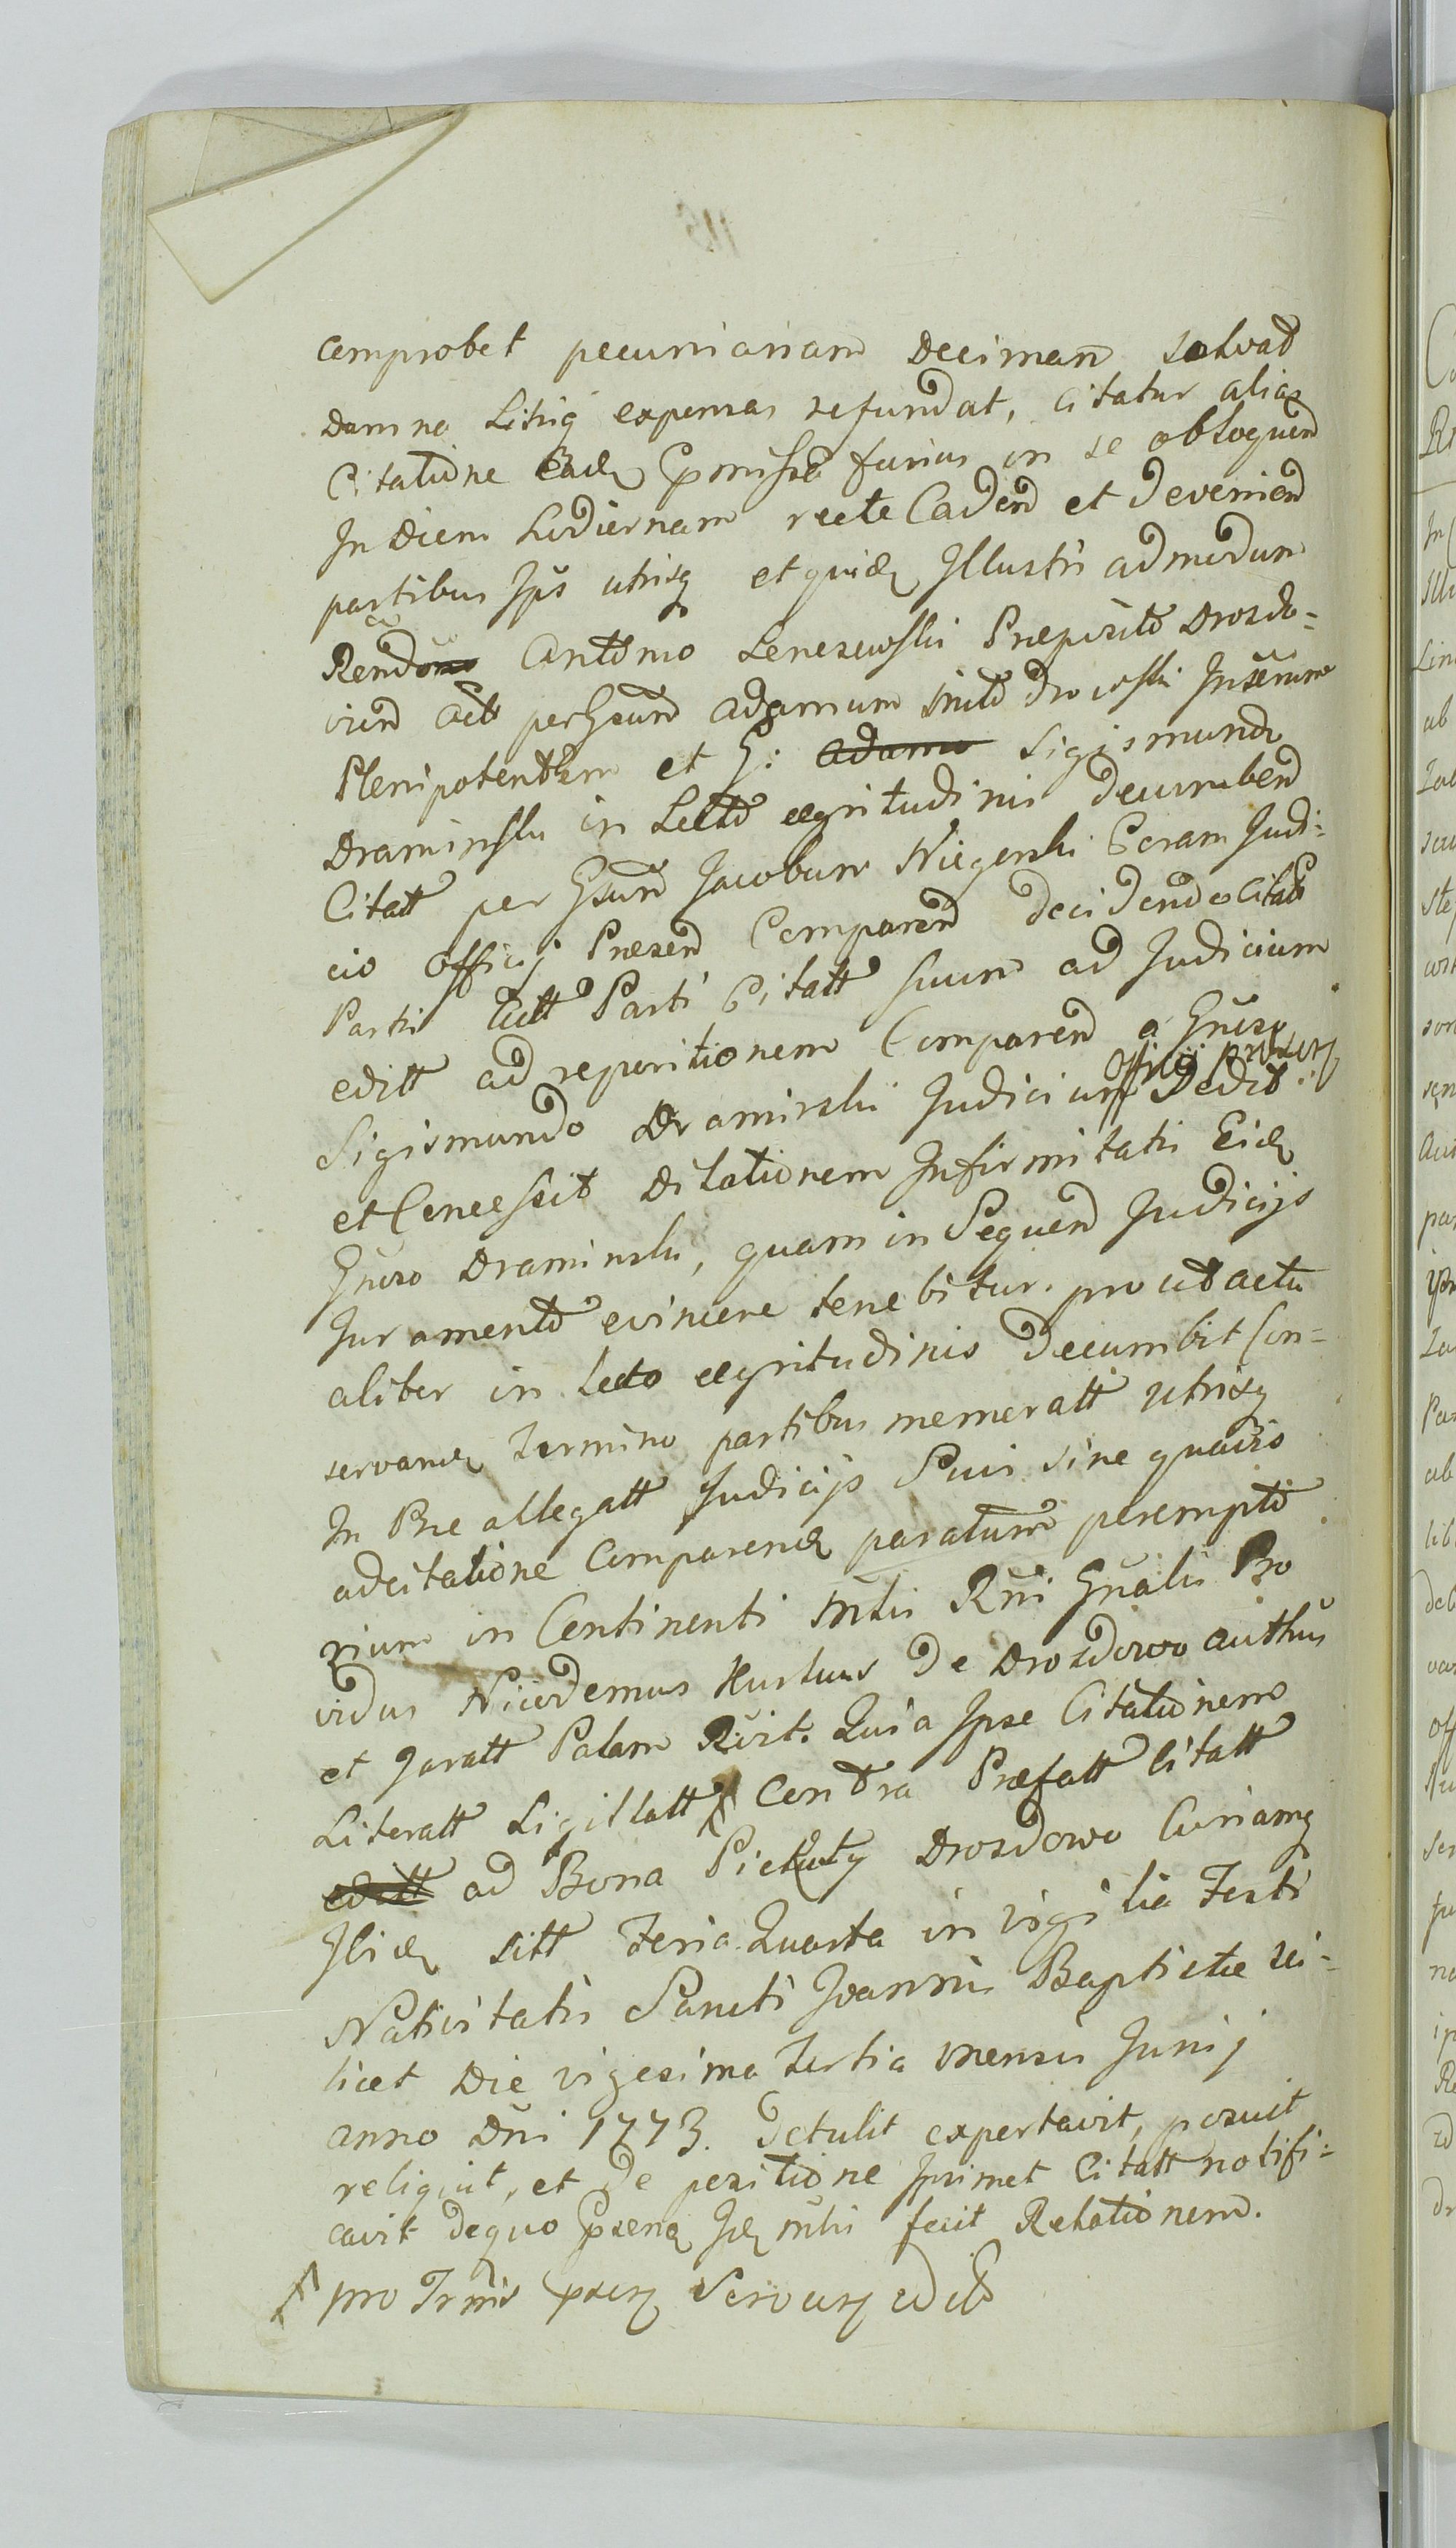 comprobet pecuniariam Decimam solvad
Damna Litig expensas refundat, citatur alias
Citatione Eadq praemissa furius in se obloquend
In Diem hodiernam recte Cadend et Deveniend
partibus Ips utrisq et quidq Illustri admodum
Rendo Antonio Leneszewski Praeposito Drozdo-
vien Act per Gsum Adamum Drozewski Inserum
Plenipotentem et G: Adamo Sigismundo
Draminski in Lecto aegritudinis Decumbend
Citatt per Gsum Jacobum Niegoski Coram Judi-
cio Officij Praesen Comparend Decidendo Citatt
Partis Actt Parti Citatt suum ad Judicium
editt ad repositionem Comparend a Gnoso
Sigismundo Draminski Judicium Officij praesens Dedit
et Concessit Dilationem Infirmitatis Eidq
Gnoso Draminski, quam in Sequend Judicijs
Juramento evincere tenebitur. pro ut actu
aliter in lecto aegritudinis Decumbit Con-
servando Termino partibus memoratt utrisq
In Prae allegatt Judicijs Suis sine quavis
adcitatione Comparend paratum perempto
rium in Continenti Mtis Rni Gnalis Pro
vidus Nicodemus Kurkus De Drozdowo authus
et Juratt Palam Rvit. Quia Ipse Citationem
Literatt Sigillatt Contra Praefatt Citatt
editt ad Bona Piekuty Drozdowo Curiamq
Ibidq sitt Feria Quarta in vigilia Festi
Nativitatis Sancti Joannis Baptistae sci-
licet Die vigesima Tertia mensis Junij
anno Dni 1773. Detulit exportavit, posuit
reliquit, et De positione Ipsimet Citatt notifi-
cavit Dequo praenq Idq mtis fecit Relationem.
pro Trmis praesq Servusq edit